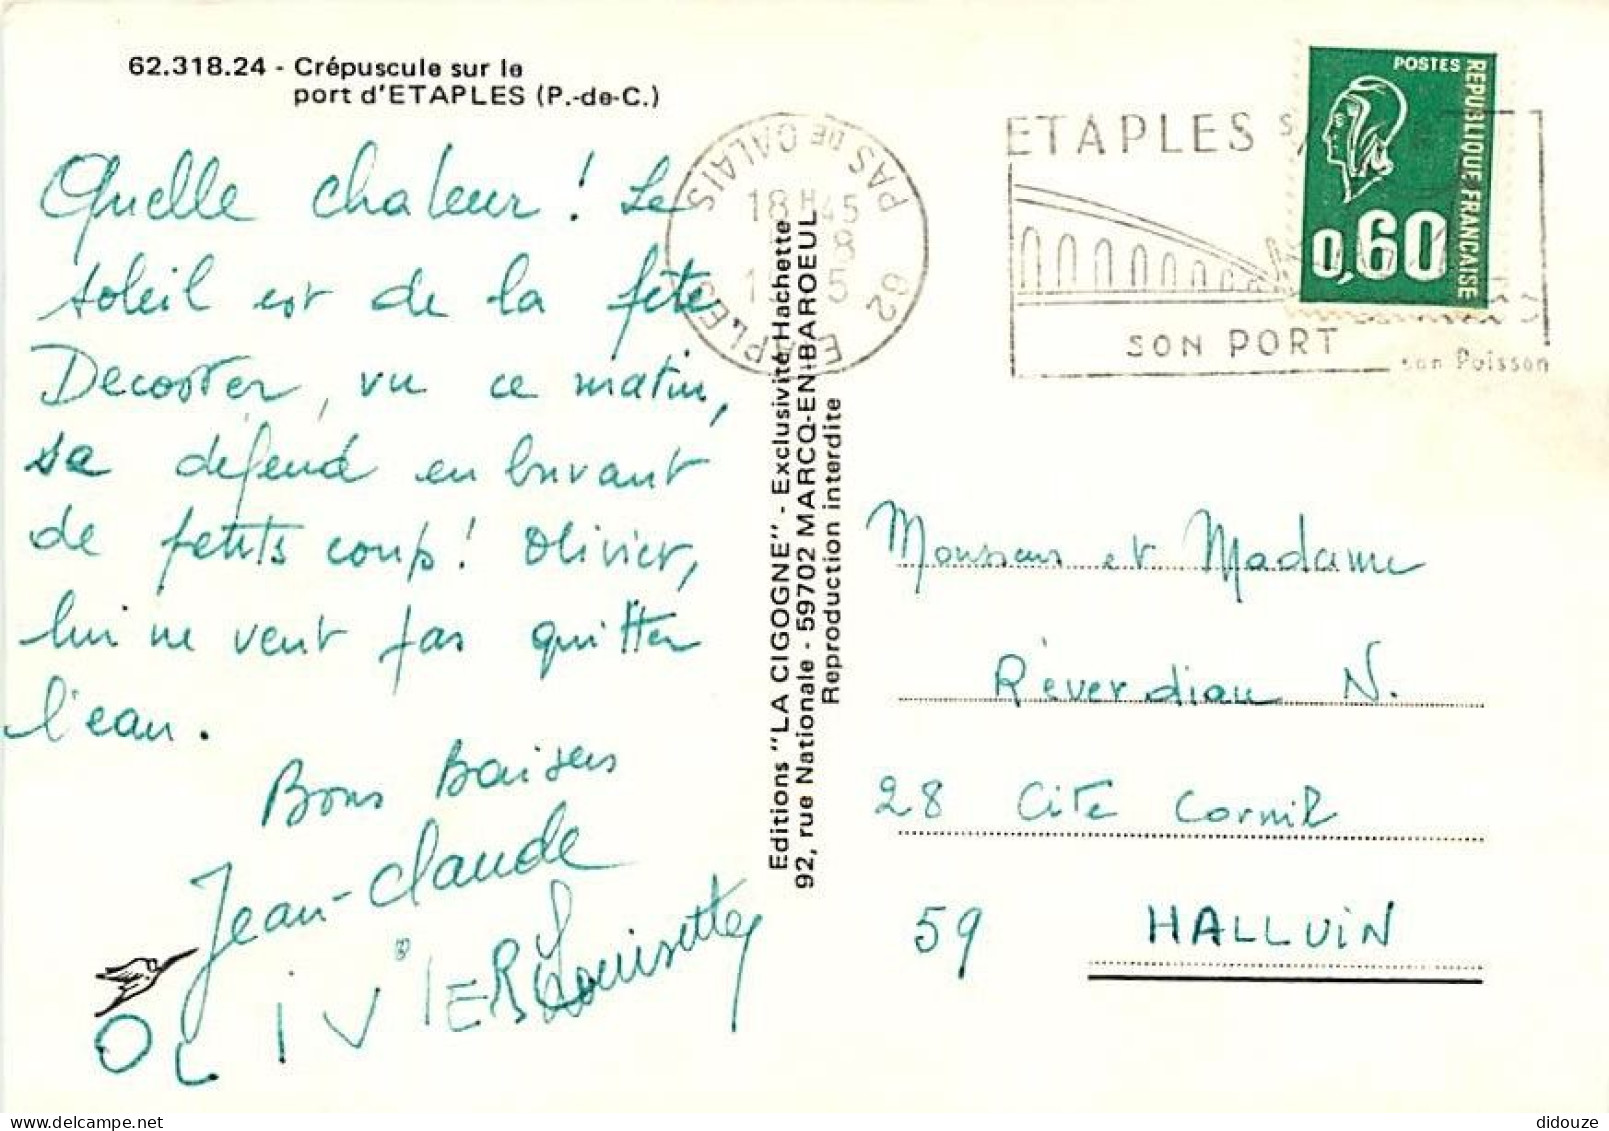 62.318.24 - Crépuscule sur le
port d'ETAPLES (P.-de-C.)
Quelle chaleur ! Le
soleil est de la fête
Decoster, vu ce matin,
se défend en buvant
de petits coups! Olivier,
lui ne veut pas quitter
l'eau.
Bons Baisers
Jean-Claude
OLIVIER Louisette
Editions "LA CIGOGNE" - Exclusivité Hachette
92, rue Nationale - 59702 MARCQ-EN-BAROEUL
Reproduction interdite
62 ETAPLES
PAS DE CALAIS
18H45
8
5
ETAPLES S/
SON PORT
son Poisson
POSTES
REPUBLIQUE FRANCAISE
0,60
Monsieur et Madame
Réverdiau N.
28 Cité Cornil
59 HALLUIN
didouze